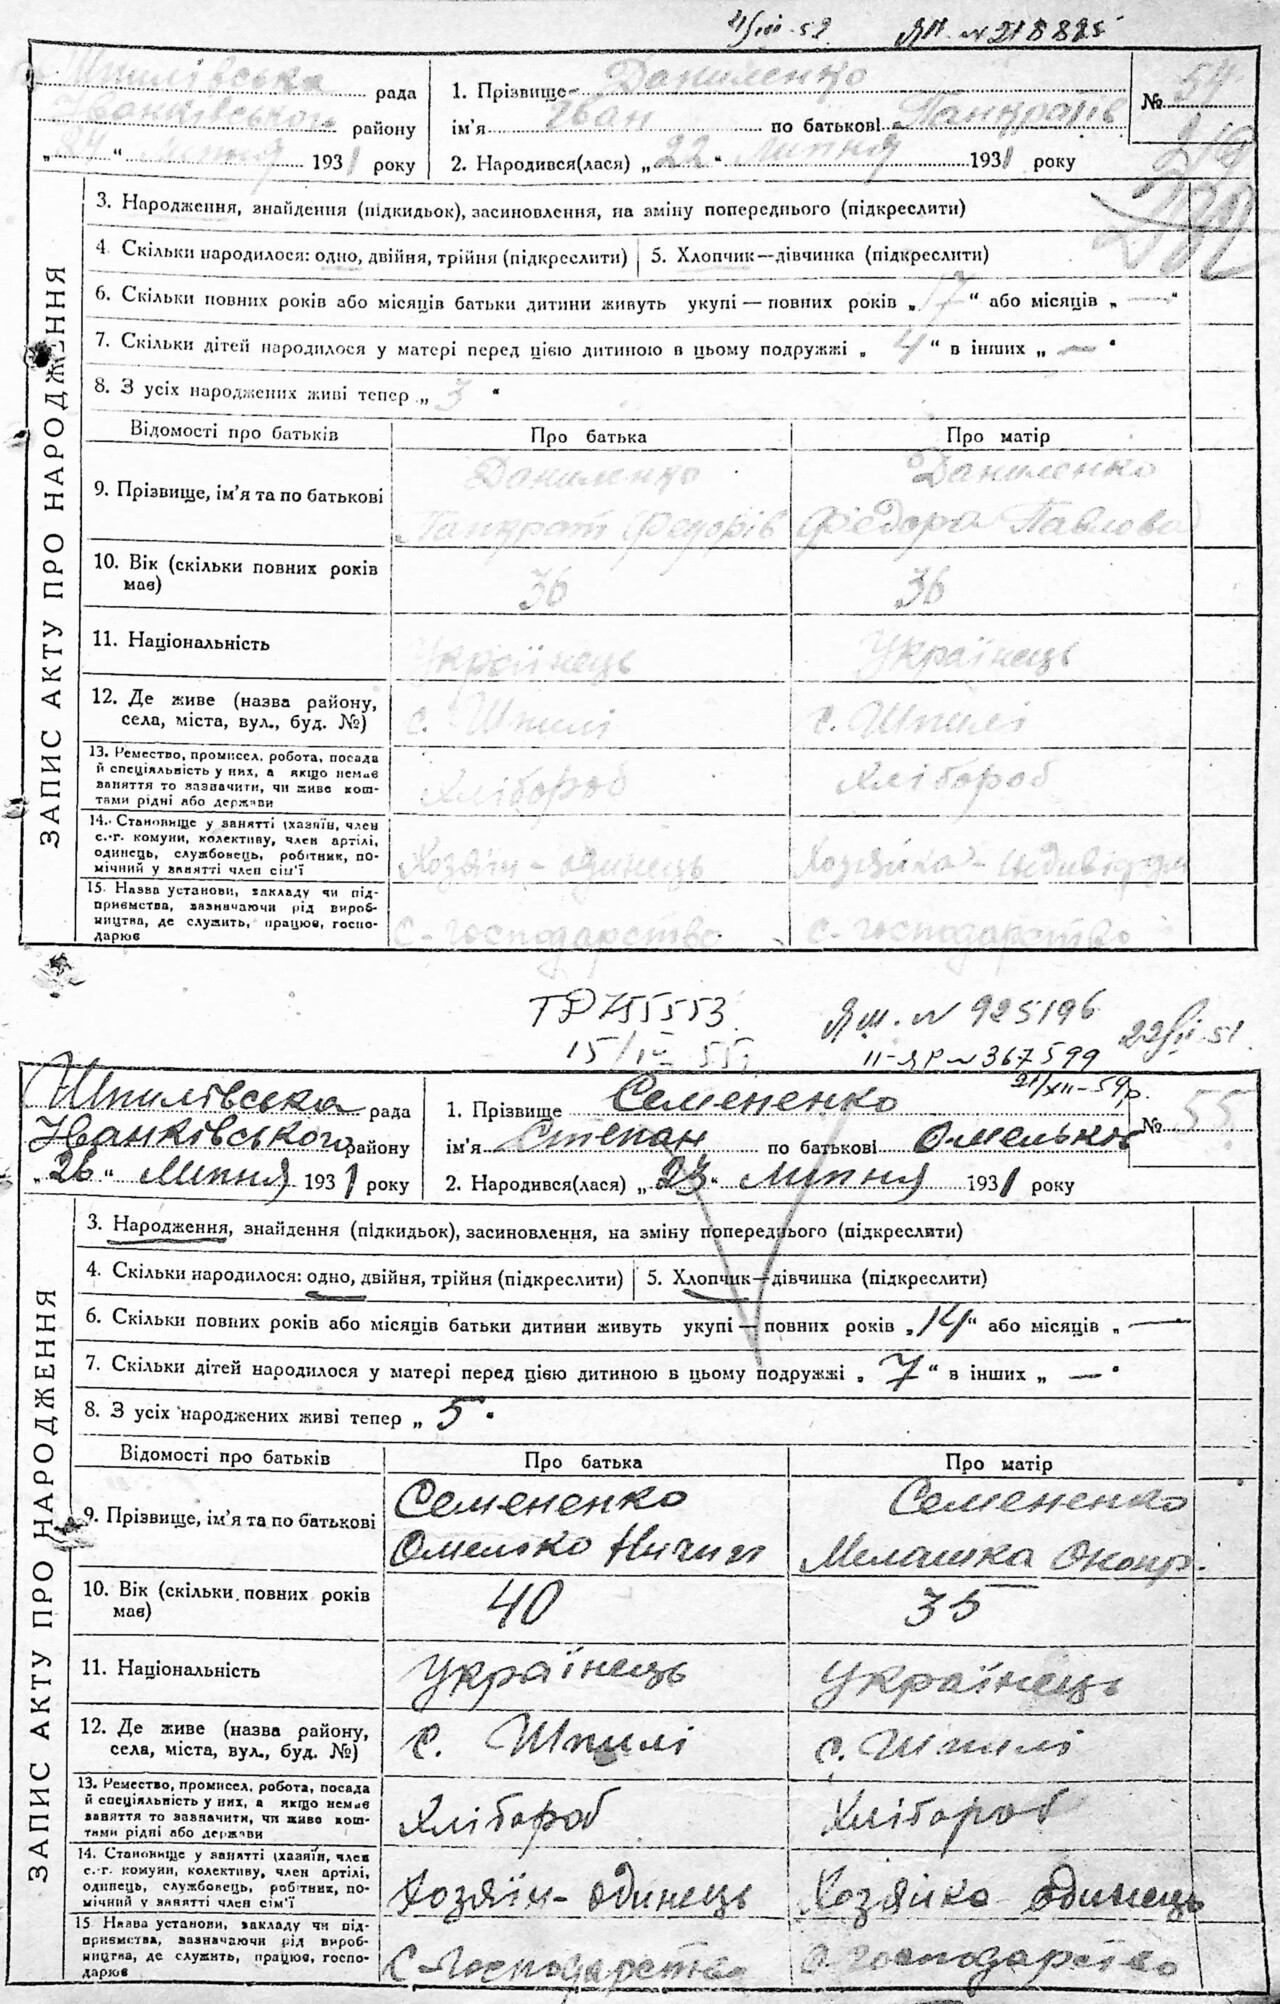 4/VIII-52 ЯП. № 218825
Шпилівська рада
Іванківського району
„24“ Липня 1931 року
1. Прізвище Даниленко
ім'я Іван по батькові Панкратів
2. Народився(лася) „22“ Липня 1931 року
№ 54
ЗАПИС АКТУ ПРО НАРОДЖЕННЯ
3. Народження, знайдення (підкидьок), засиновлення, на зміну попереднього (підкреслити)
4. Скільки народилося: одно, двійня, трійня (підкреслити) 5. Хлопчик—дівчинка (підкреслити)
6. Скільки повних років або місяців батьки дитини живуть укупі — повних років „17“ або місяців „—“
7. Скільки дітей народилося у матері перед цією дитиною в цьому подружжі „4“ в інших „—“
8. З усіх народжених живі тепер „3“
Відомості про батьків Про батька Про матір
9. Прізвище, ім'я та по батькові Даниленко Даниленко
Панкрат Федорів Фєдора Павлова
10. Вік (скільки повних років має) 36 36
11. Національність Українець Українець
12. Де живе (назва району, села, міста, вул., буд. №) с. Шпилі с. Шпилі
13. Ремество, промисел, робота, посада
й спеціяльність у них, а якщо немає
заняття то зазначити, чи живе кош-
тами рідні або держави Хлібороб Хлібороб
14. Становище у занятті (хазяїн, член
с.-г. комуни, колективу, член артілі,
одинець, службовець, робітник, по-
мічний у занятті член сім'ї Хозяїн - одинець Хозяйка -
15. Назва установи, закладу чи під-
приємства, зазначаючи рід вироб-
ництва, де служить, працює, госпо-
дарює С-господарство С-господарство
ТР 755553 ЯШ. № 925196
15/IV 55 II-ЯР № 367599
21/XII-59р.
Шпилівська рада
Іванківського району
„26“ Липня 1931 року
1. Прізвище Семененко
ім'я Степан по батькові Омельков
2. Народився(лася) „23“ Липня 1931 року
№ 55
ЗАПИС АКТУ ПРО НАРОДЖЕННЯ
3. Народження, знайдення (підкидьок), засиновлення, на зміну попереднього (підкреслити)
4. Скільки народилося: одно, двійня, трійня (підкреслити) 5. Хлопчик—дівчинка (підкреслити)
6. Скільки повних років або місяців батьки дитини живуть укупі — повних років „14“ або місяців „—
7. Скільки дітей народилося у матері перед цією дитиною в цьому подружжі „7“ в інших „—“
8. З усіх народжених живі тепер „5“
Відомості про батьків Про батька Про матір
9. Прізвище, ім'я та по батькові Семененко Семененко
Омелько Ничип Мелашка Онопр.
10. Вік (скільки повних років має) 40 35
11. Національність Українець Українець
12. Де живе (назва району, села, міста, вул., буд. №) с. Шпилі с. Шпилі
13. Ремество, промисел, робота, посада
й спеціяльність у них, а якщо немає
заняття то зазначити, чи живе кош-
тами рідні або держави Хлібороб Хлібороб
14. Становище у занятті (хазяїн, член
с.-г. комуни, колективу, член артілі,
одинець, службовець, робітник, по-
мічний у занятті член сім'ї Хозяїн - одинець Хозяйко одинець
15 Назва установи, закладу чи під-
приємства, зазначаючи рід вироб-
ництва, де служить, працює, госпо-
дарює С-Господарство С-господарство